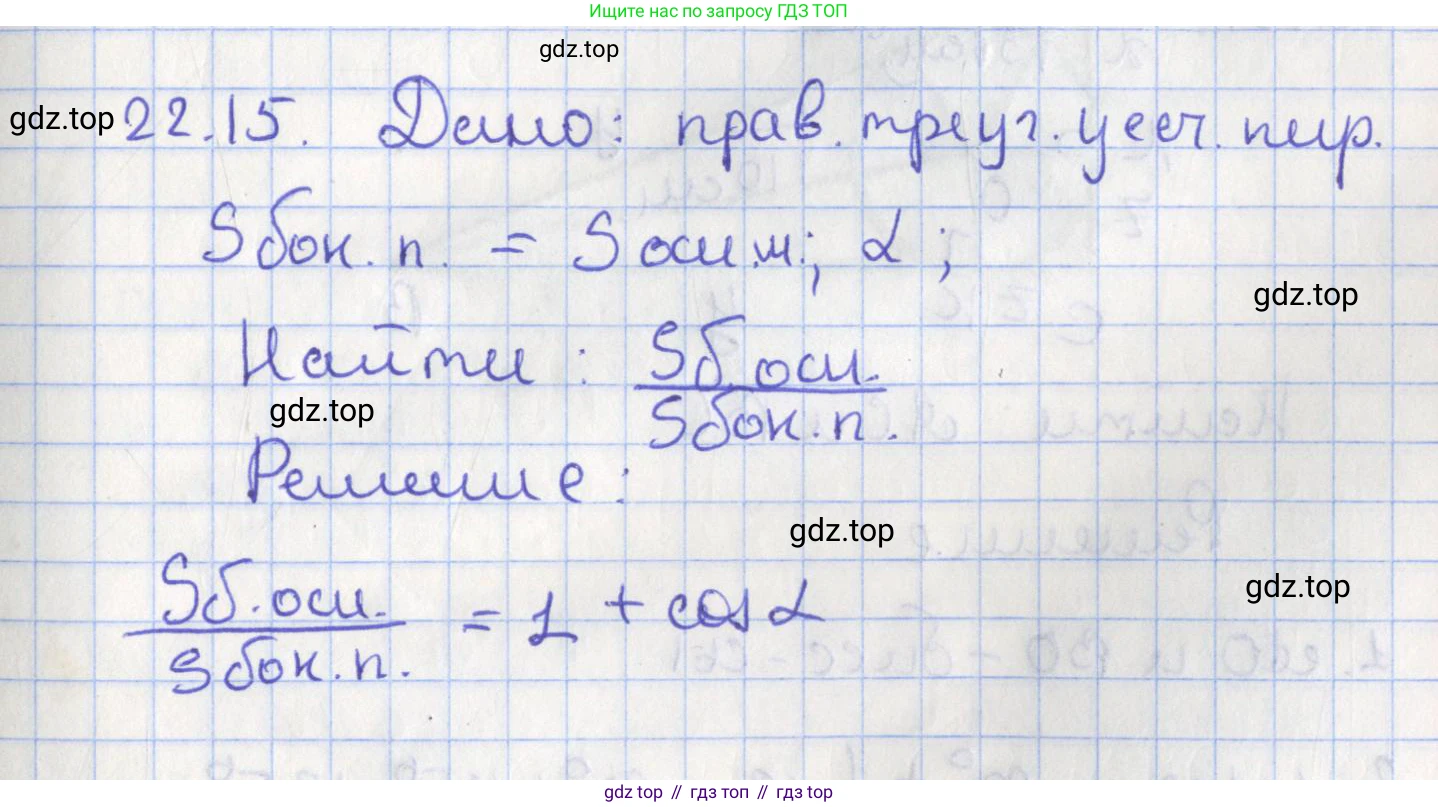 Ищите нас по запросу ГДЗ ТОП
gdz.top
gdz.top 22.15. Дано: прав. треуг. усеч. пир.
Sбок. п. = Sосн.м.; α;
gdz.top
Найти: Sб.осн. / Sбок.п.
gdz.top
Решение:
gdz.top
Sб.осн. / Sбок.п. = 1 + cos α
gdz.top
gdz top // гдз топ // гдз top